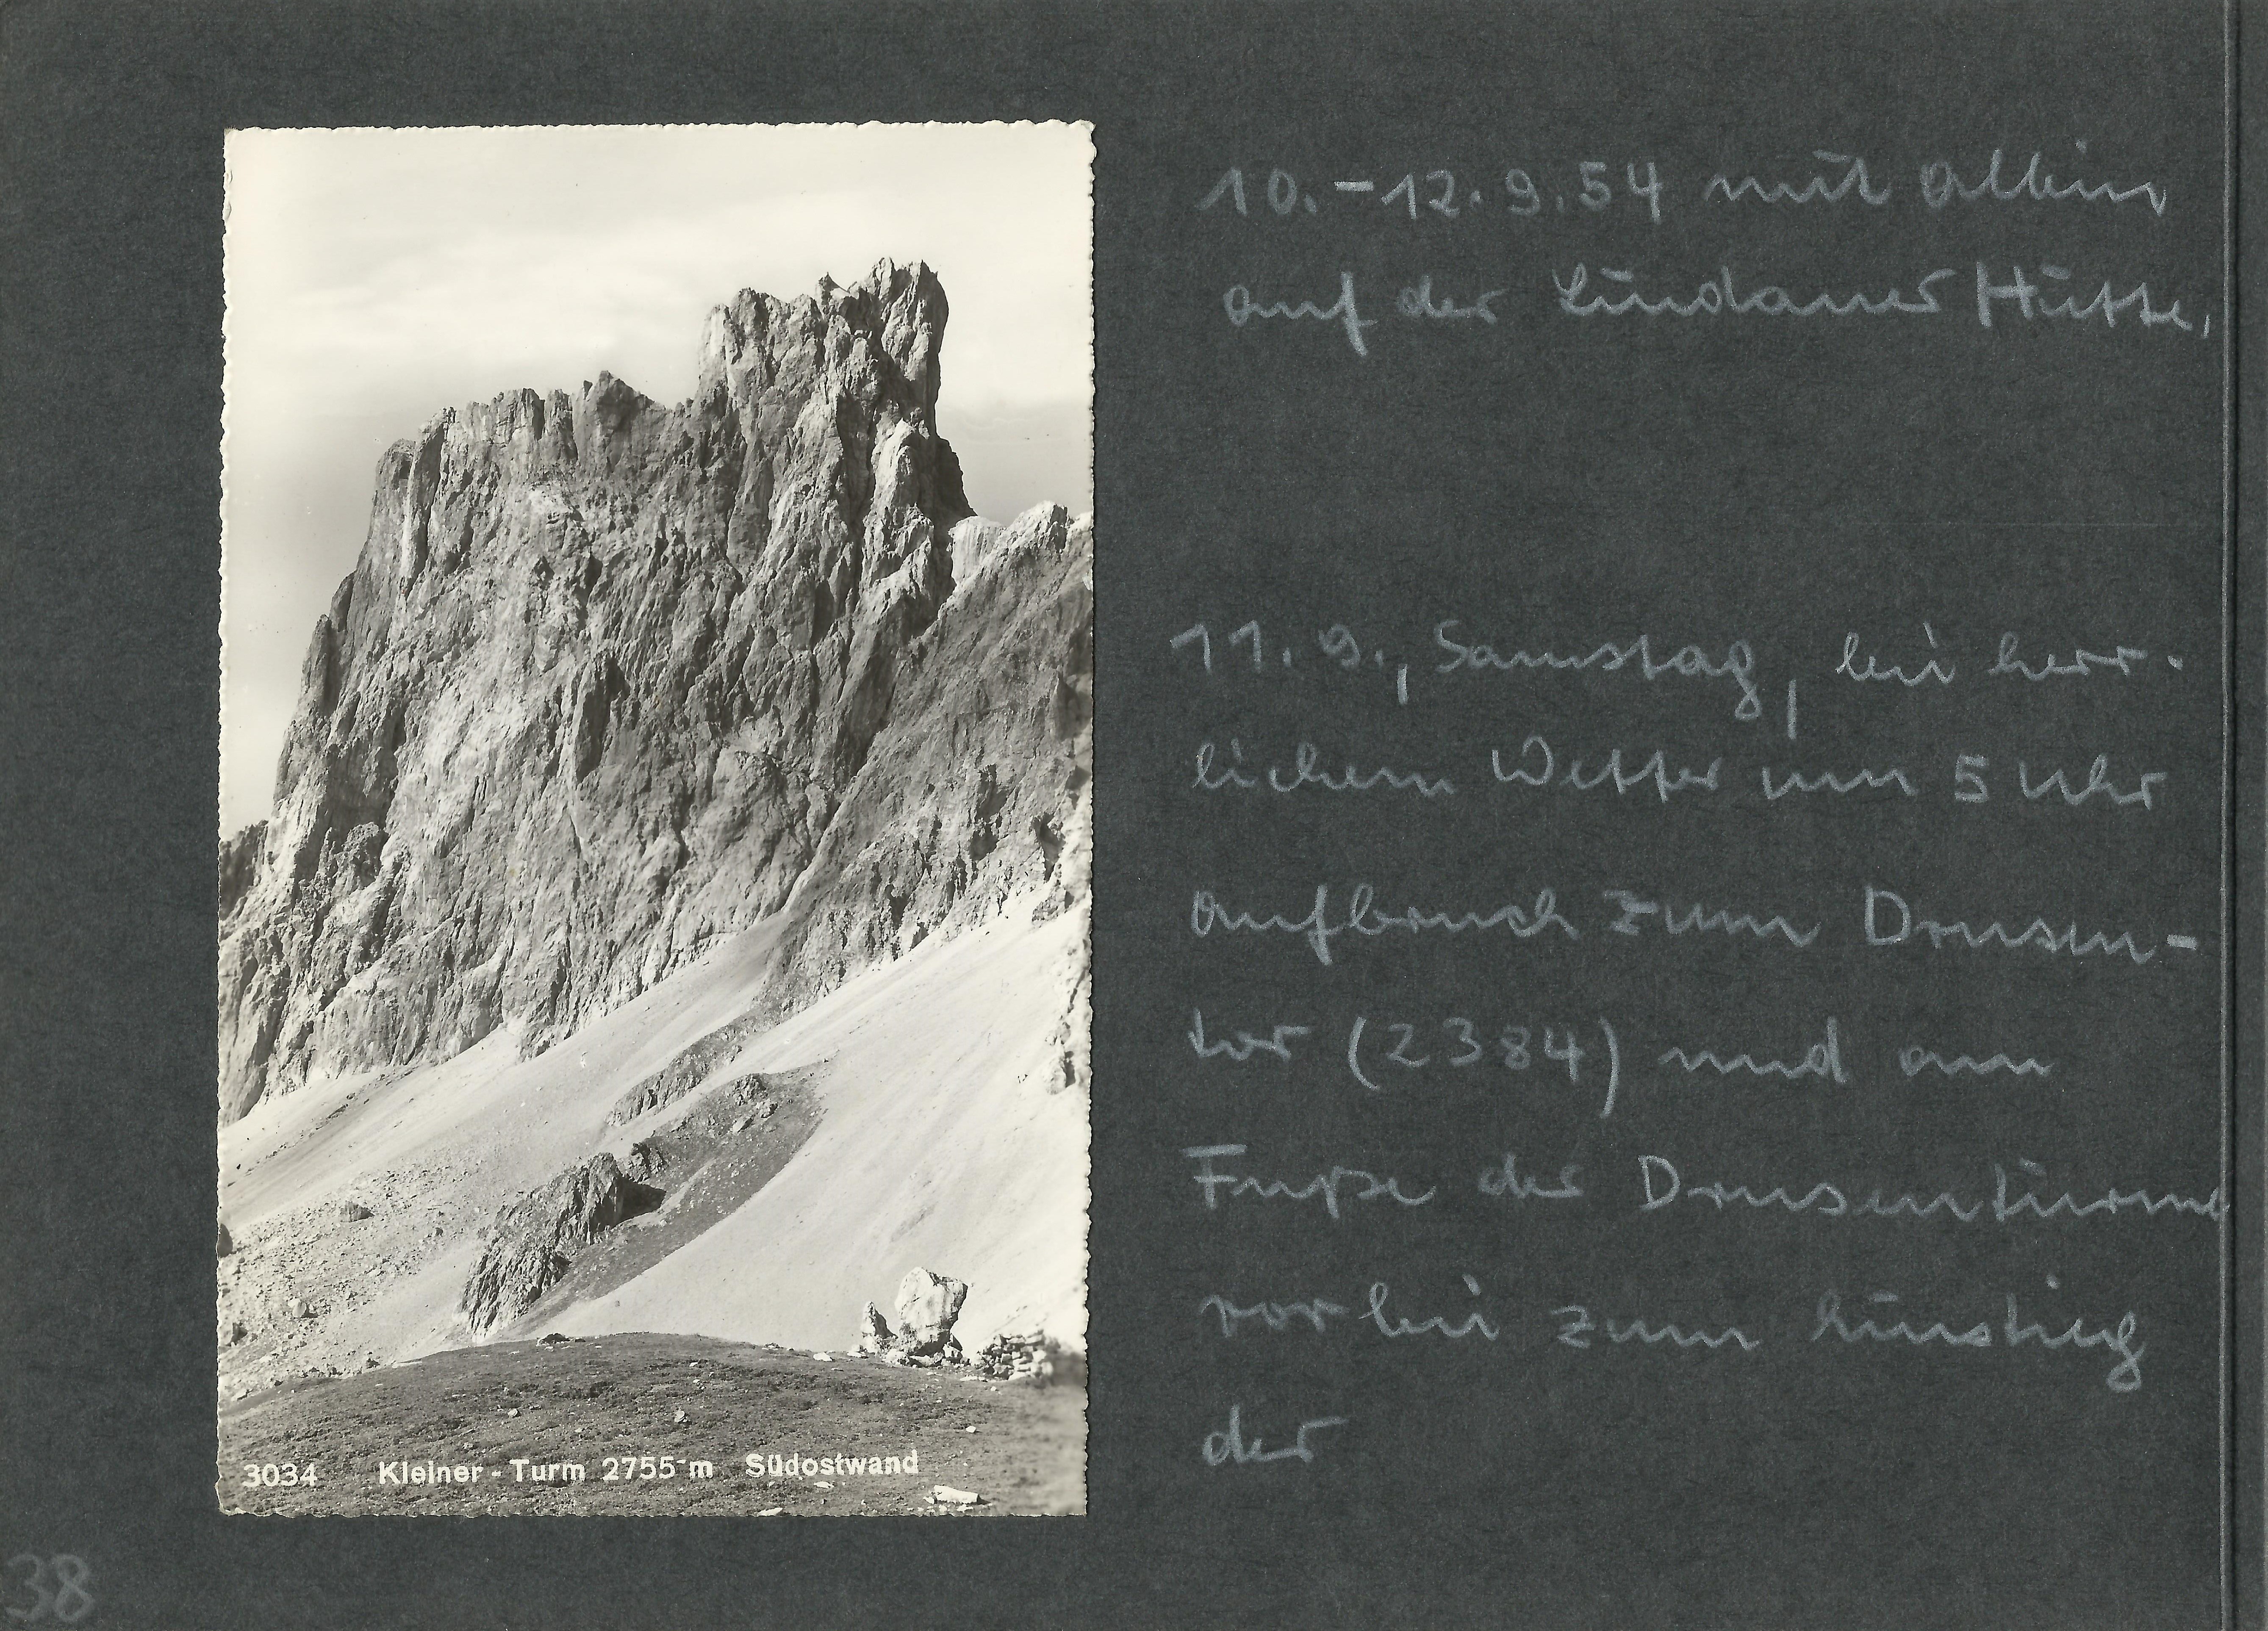 10.-12.9.54 mit Albin
auf der Lindauer Hütte,
11.9., Samstag, bei herr-
lichem Wetter um 5 Uhr
Aufbruch zum Drusen-
tor (2384) und am
Fuße der Drusentürme
vorbei zum Einstieg
der
3034 Kleiner-Turm 2755 m Südostwand
38